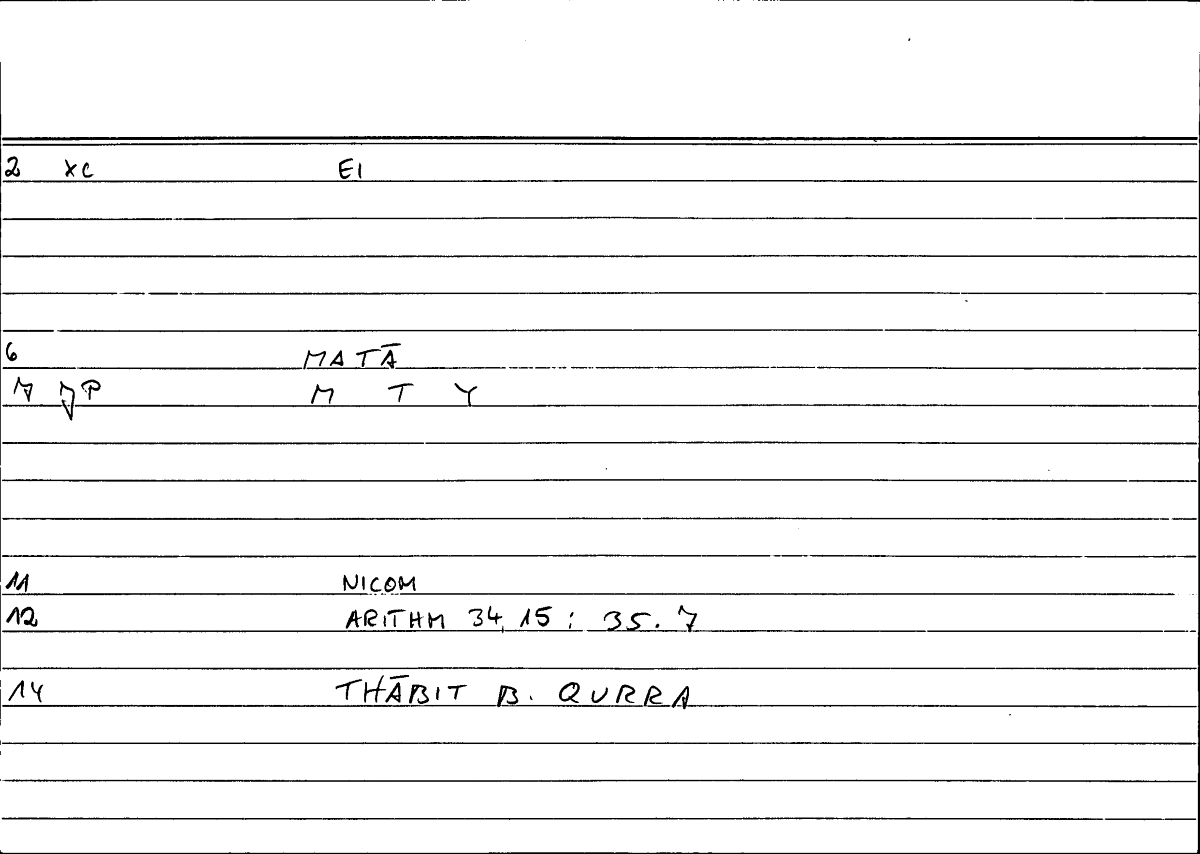 2 XC EI
6 MATĀ
7 P M T Y
11 NICOM
12 ARITHM 34,15 : 35.7
14 THĀBIT B. QURRA